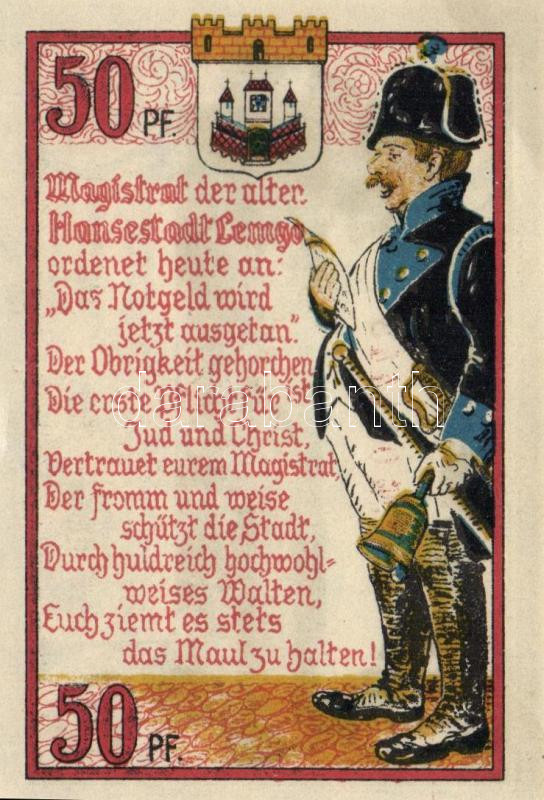 50 PF.
Magistrat der alten
Hansestadt Lemgo
ordenet heute an:
„Das Notgeld wird
jetzt ausgetan."
Der Obrigkeit gehorchen
Die erste Pflicht für ist
Jud und Christ,
Vertrauet eurem Magistrat,
Der fromm und weise
schützt die Stadt,
Durch huldreich hochwohl=
weises Walten,
Euch ziemt es stets
das Maul zu halten!
50 PF.
darabanth